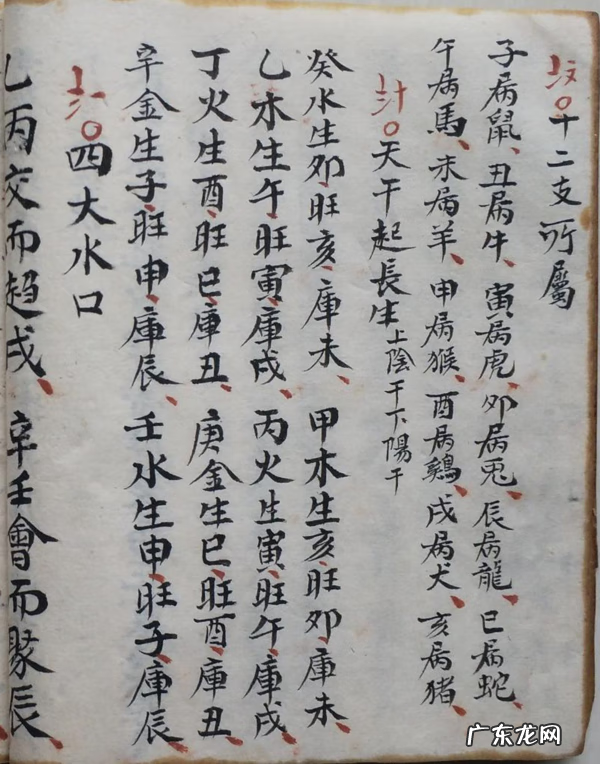 〇十二支所屬
子病鼠、丑病牛、寅病虎、夘病兎、辰病龍、巳病蛇、
午病馬、未病羊、申病猴、酉病鷄、戌病犬、亥病猪、
〇天干起長生 上陰干下陽干
癸水生夘、旺亥、庫未、甲木生亥、旺夘、庫未、
乙木生午、旺寅、庫戌、丙火生寅、旺午、庫戌、
丁火生酉、旺巳、庫丑、庚金生巳、旺酉、庫丑、
辛金生子、旺申、庫辰、壬水生申、旺子、庫辰
〇四大水口
乙丙交而趋戌、辛壬會而聚辰、
广东龙网